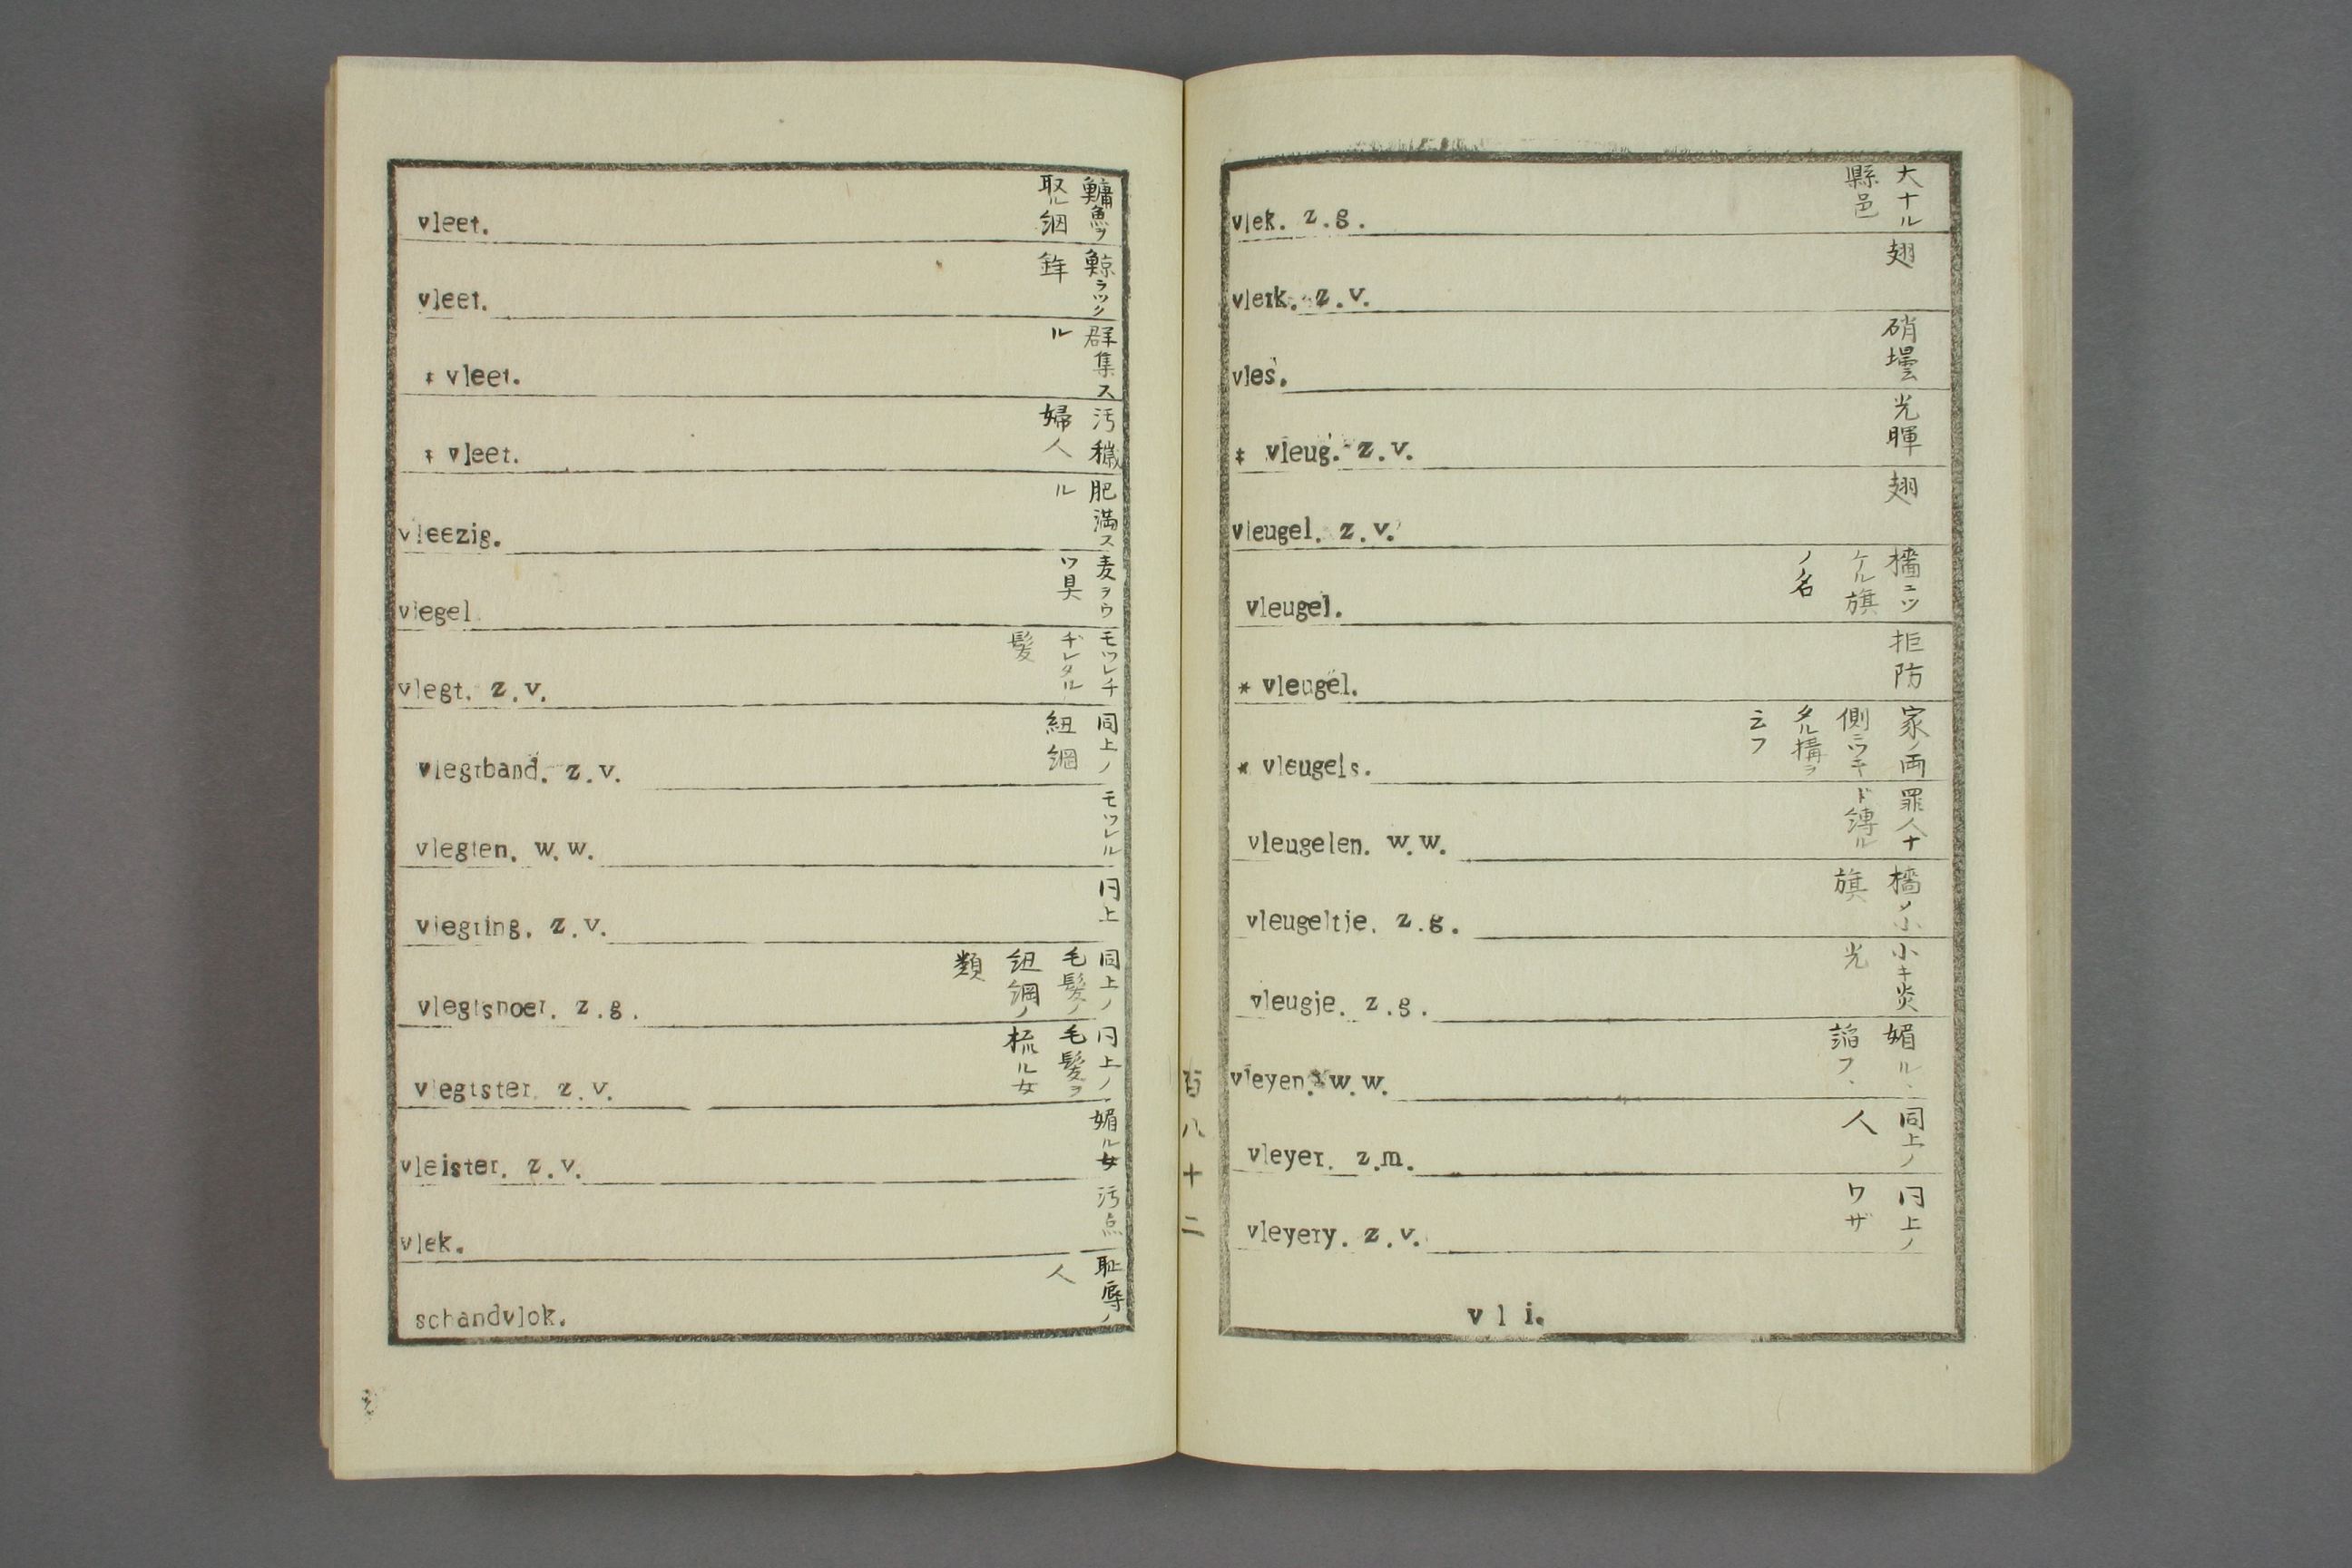 vleet. 鱅魚ヲ取ル綱
vleet. 鯨ヲツク鉾
* vleet. 群集スル
* vleet. 汚穢婦人
vleezig. 肥満スル
vlegel 麦ヲウツ具
vlegt. z.v. モツレチヂレタル髪
vlegtband. z.v. 同上ノ紐綱
vlegten. w.w. モツレル
vlegting. z.v. 同上
vlegtsnoer. z.g. 同上ノ毛髪ノ紐綱ノ類
vlegtster. z.v. 同上ノ毛髪ヲ梳ル女
vleister. z.v. 媚ル女
vlek. 汚点
schandvlok. 耻辱ノ人
百八十二
vlek. z.g. 大ナル縣邑
vlerk. z.v. 翅
vles. 硝壜
* vleug. z.v. 光暉
vleugel. z.v. 翅
vleugel. 檣ニツケル旗ノ名
* vleugel. 拒防
* vleugels. 家ノ両側ニツキタル構ヲ云フ
vleugelen. w.w. 罪人ナド縛ル
vleugeltje. z.g. 檣ノ小旗
vleugje. z.g. 小キ炎光
vleyen. w.w. 媚ル、諂フ、
vleyer. z.m. 同上ノ人
vleyery. z.v. 同上ノワザ
v l i.